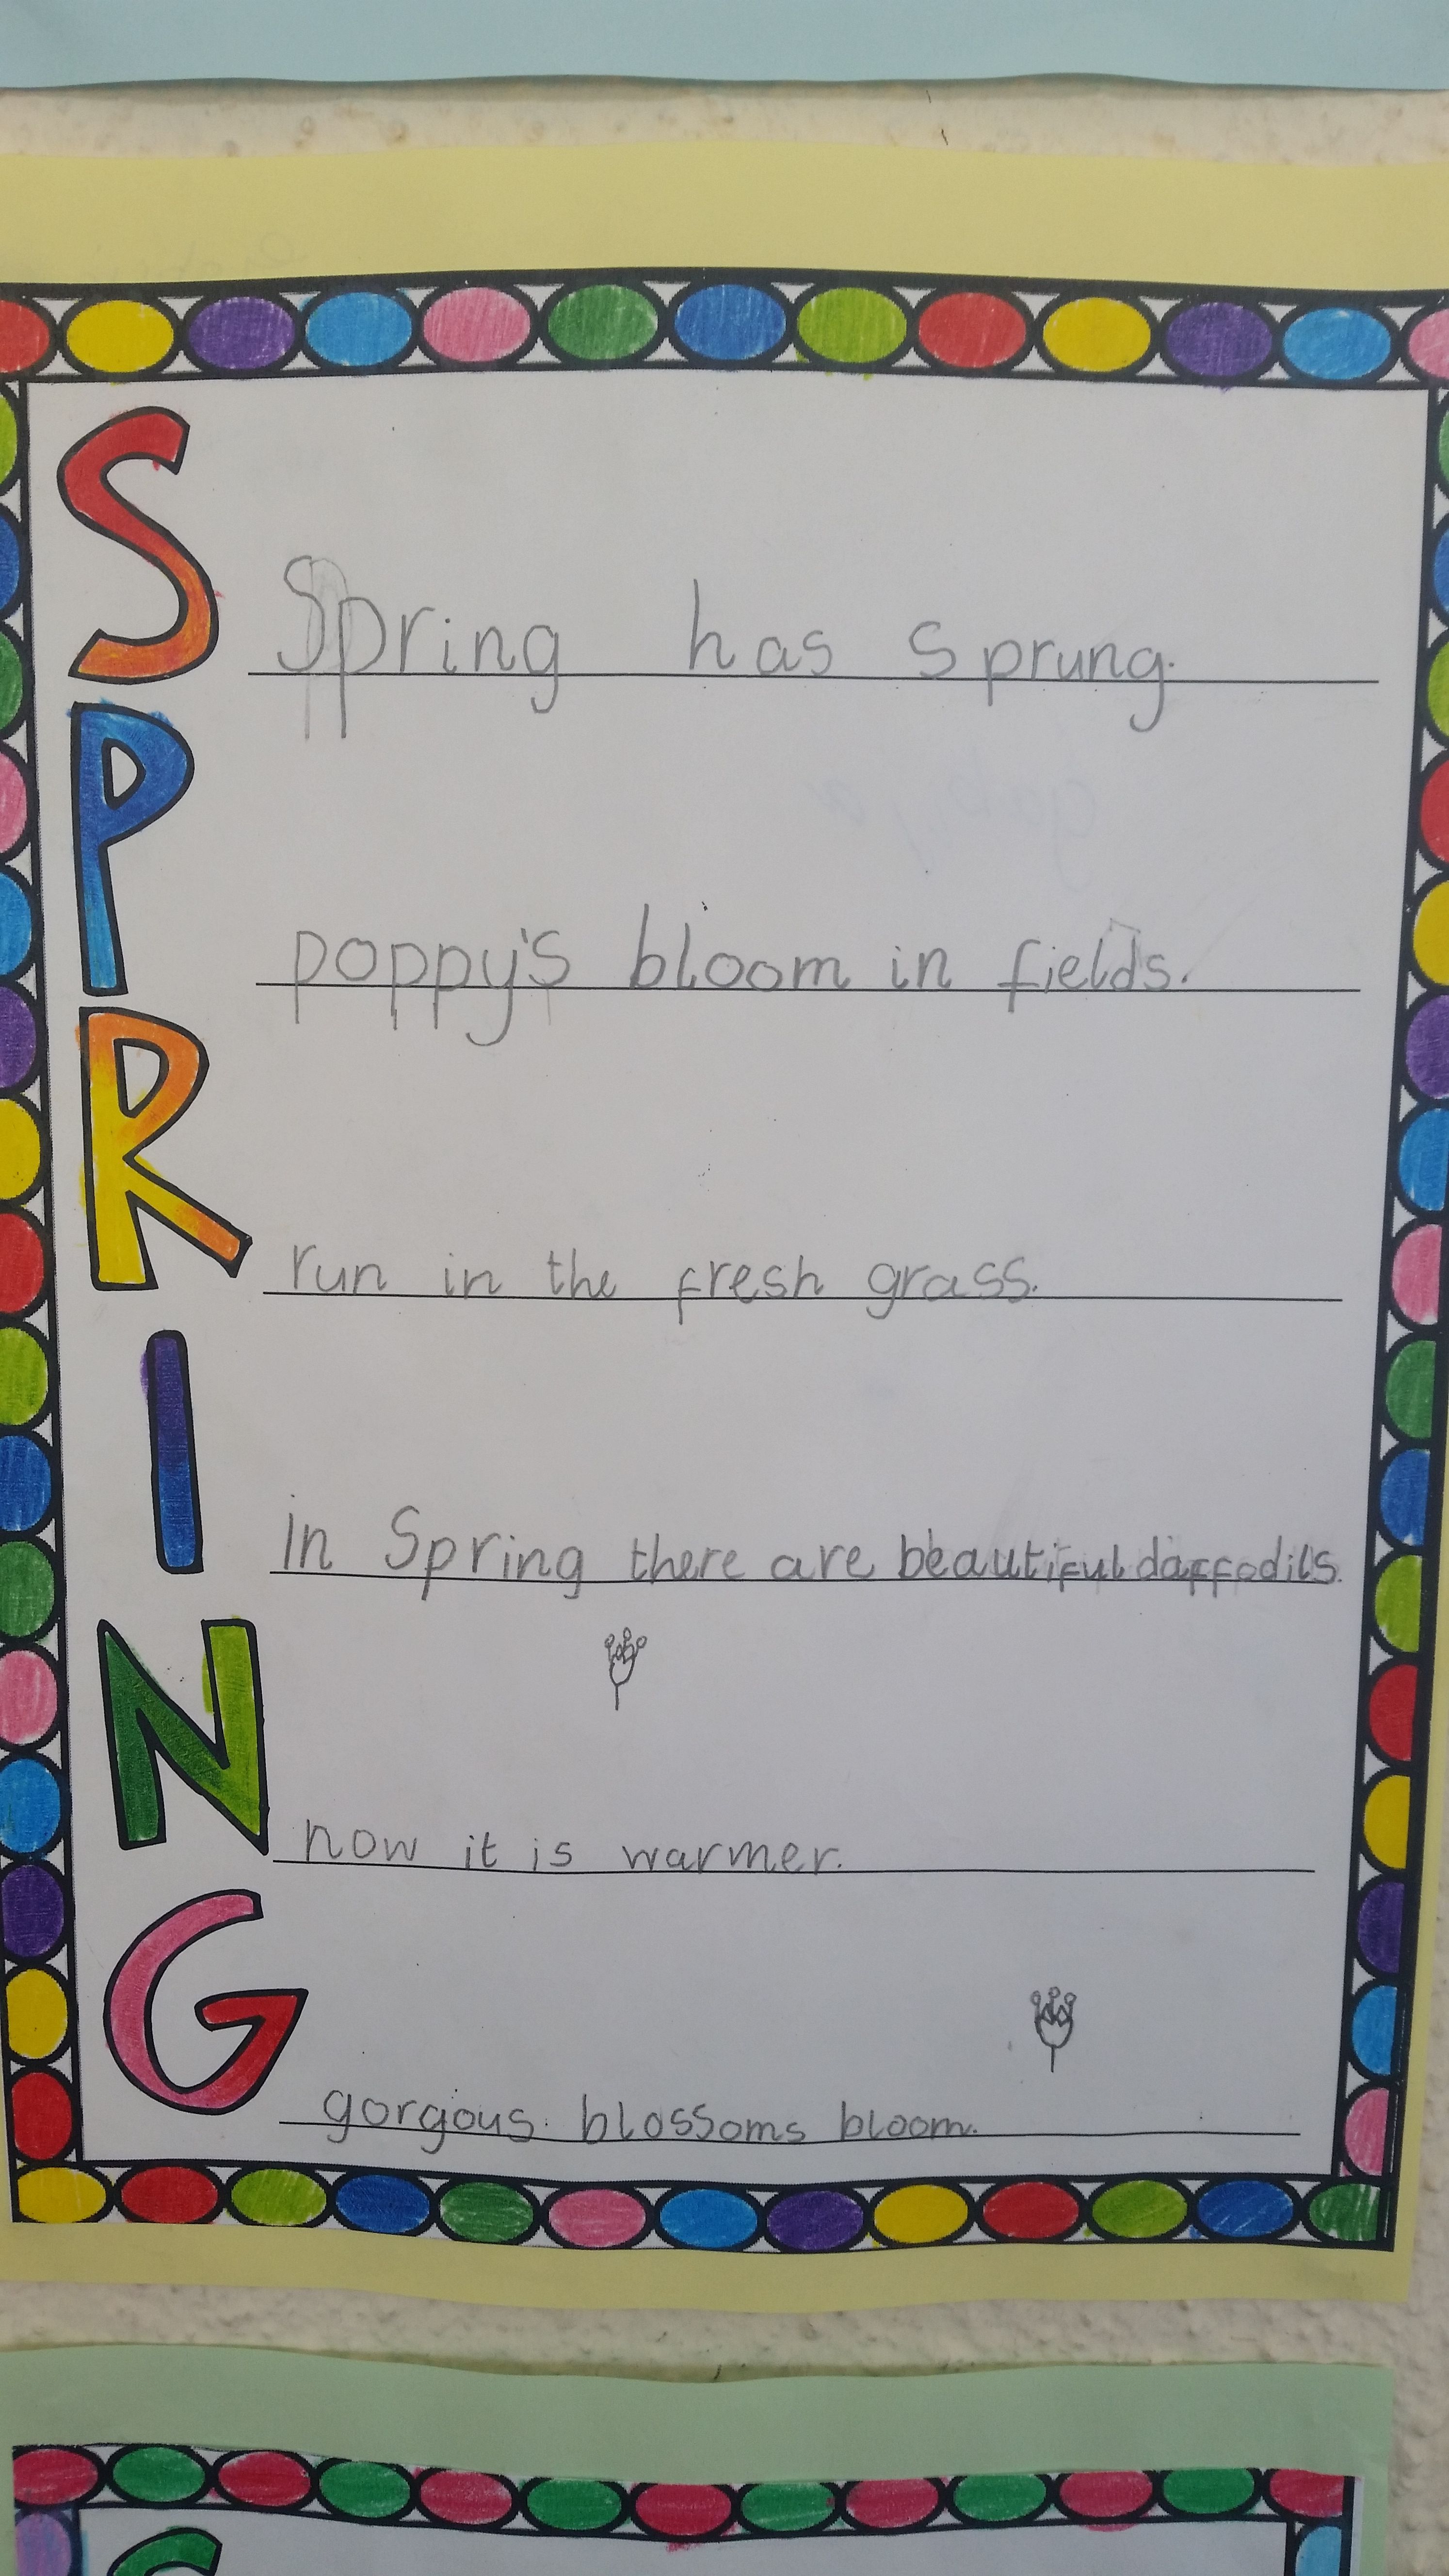 S
Spring has sprung.
P
poppy's bloom in fields.
R
run in the fresh grass.
I
in Spring there are beautiful daffodils.
N
now it is warmer.
G
gorgous blossoms bloom.